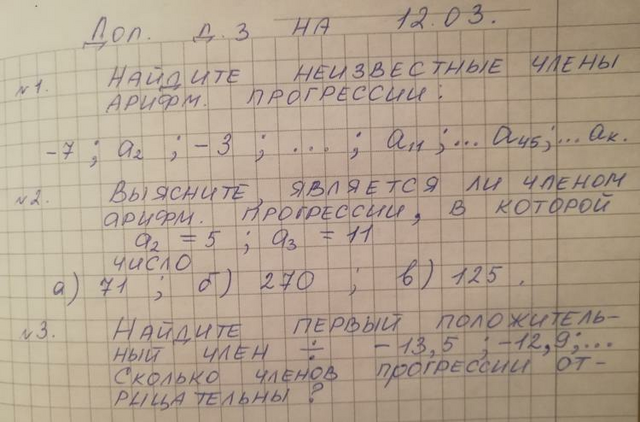 Доп. Д.З НА 12.03.
№1. НАЙДИТЕ НЕИЗВЕСТНЫЕ ЧЛЕНЫ
АРИФМ. ПРОГРЕССИИ:
-7 ; a₂ ; -3 ; ... ; a₁₁ ; ... a₄₅; ... aₖ.
№2. ВЫЯСНИТЕ ЯВЛЯЕТСЯ ЛИ ЧЛЕНОМ
АРИФМ. ПРОГРЕССИИ, В КОТОРОЙ
a₂ = 5 ; a₃ = 11
ЧИСЛО
а) 71 ; б) 270 ; в) 125 .
№3. НАЙДИТЕ ПЕРВЫЙ ПОЛОЖИТЕЛЬ-
НЫЙ ЧЛЕН ÷ -13,5 ; -12,9; ...
СКОЛЬКО ЧЛЕНОВ ПРОГРЕССИИ ОТ-
РИЦАТЕЛЬНЫ?